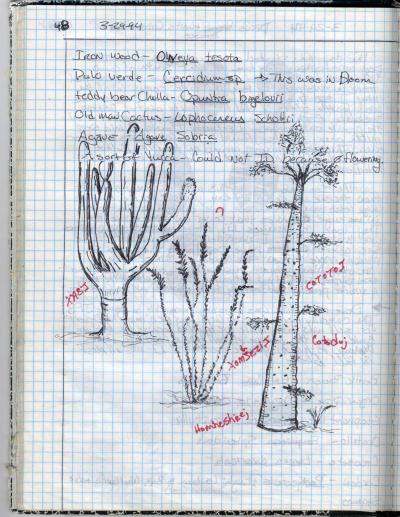 48 3-29-94
Iron wood - Olneya tesota
Palo verde - Cercidium sp → This was in Bloom
teddy bear Cholla - Opuntia bigelovii
Old man Cactus - Lophocereus Schottii
Agave - Agave Sobria
A sort of Yucca - Could Not ID because of flowering.
?
XASJ
COTOTOJ
Cotoduj
XOMJEZIJ
Hamheshizej